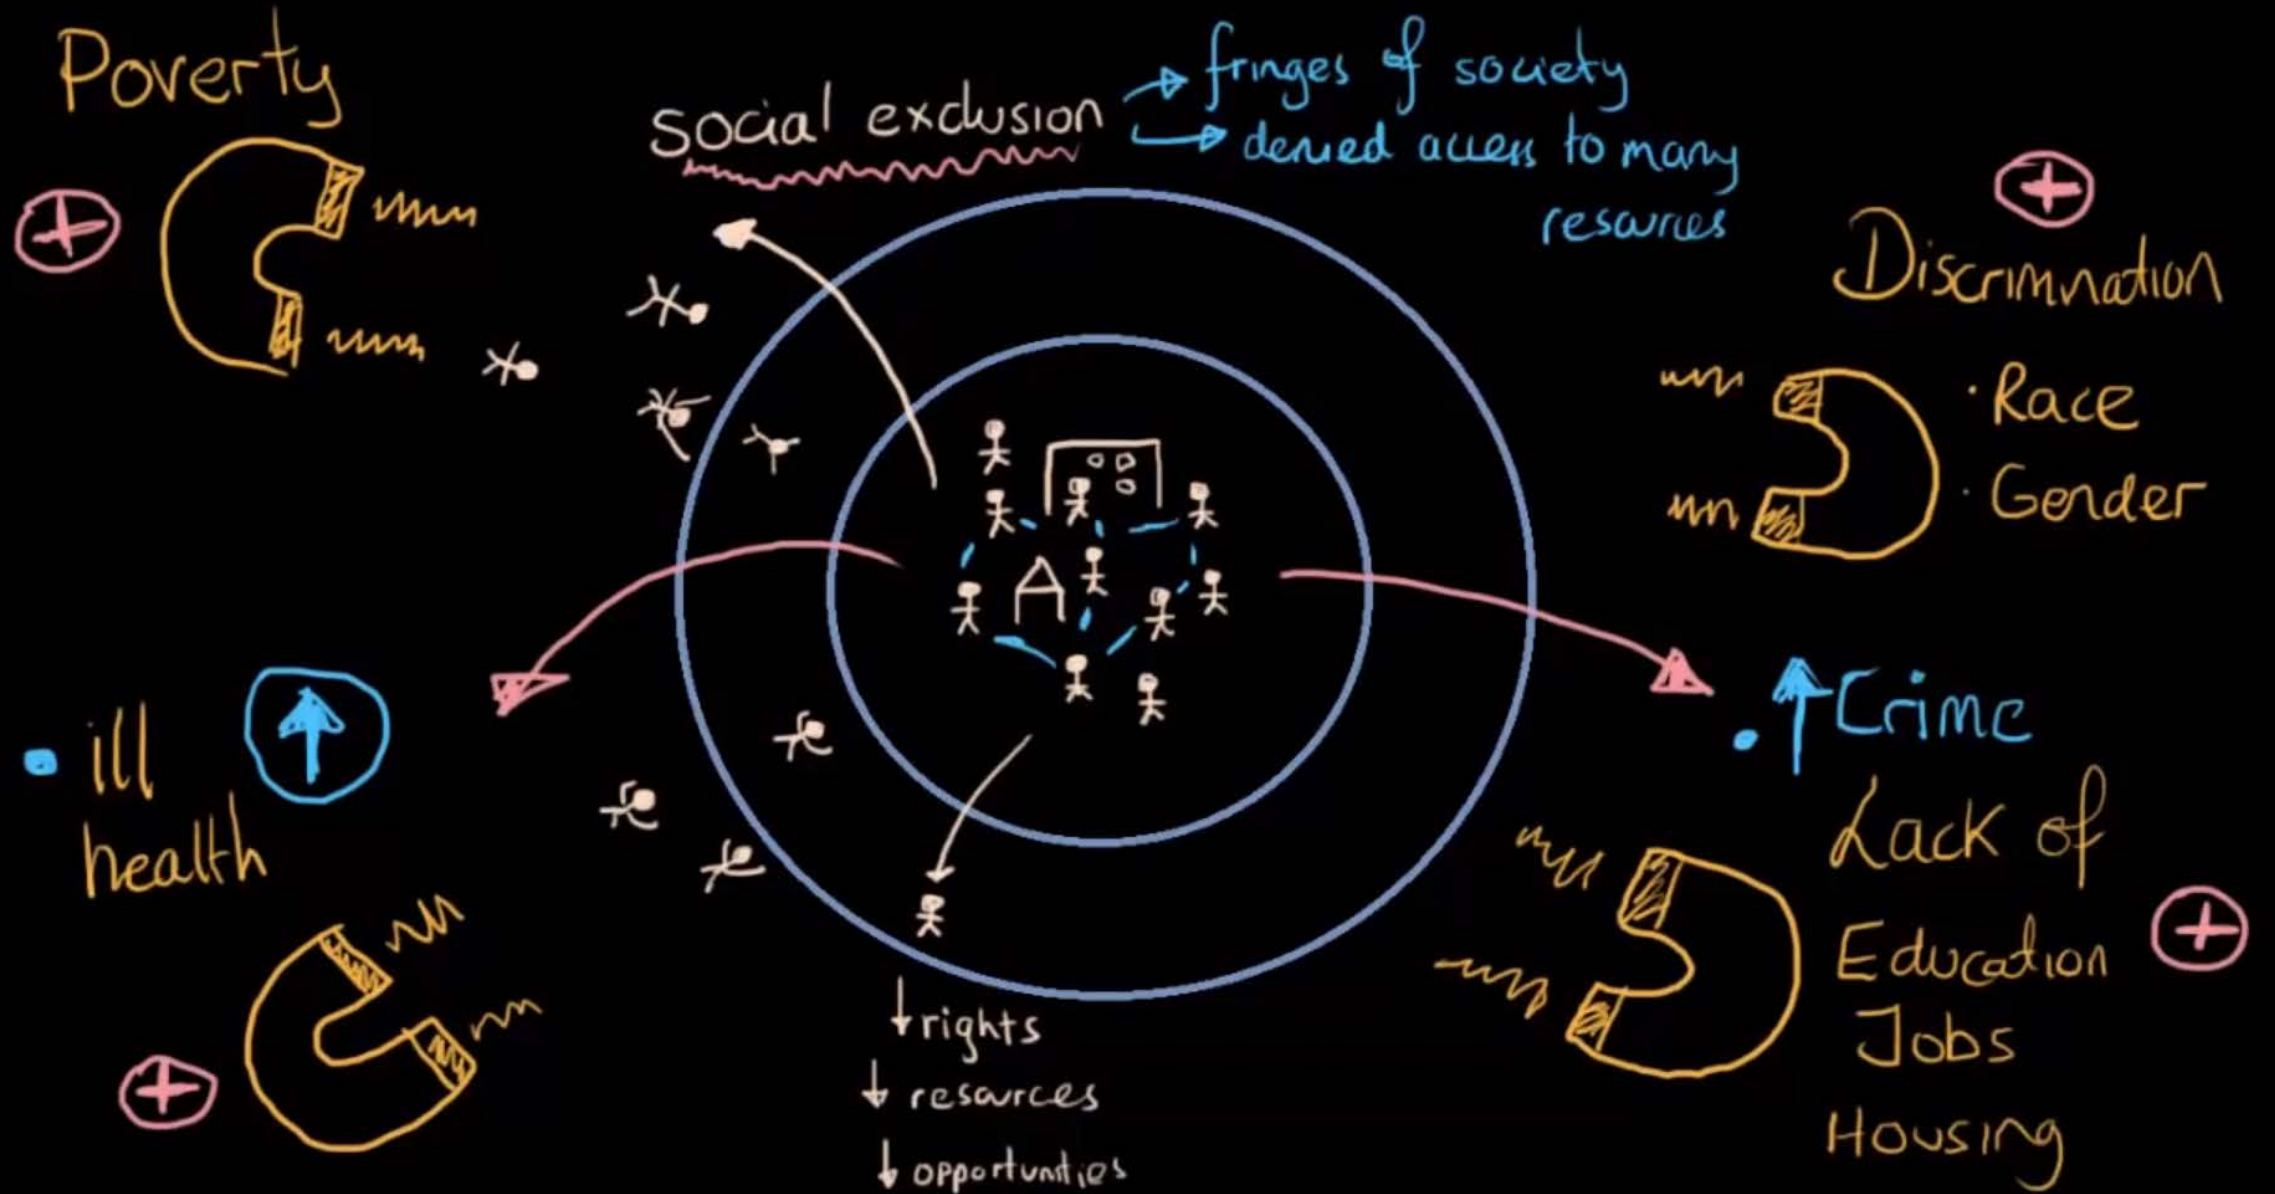 Poverty
social exclusion
fringes of society
denied access to many
resources
Discrimnation
· Race
· Gender
A
• ill
health
• ↑ Crime
Lack of
Education
Jobs
Housing
↓ rights
↓ resources
↓ opportunities